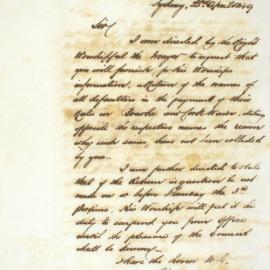 Sydney, 25 April 1849
Sir
I am directed by the Right
Worshipful the Mayor to request that
you will furnish for His Worships
information, a Return of the names of
all defaulters in the payment of their
Rates in Bourke and Cook Wards, stating
opposite the respective names the reason
why such sums have not been collected
by you.
I am further directed to state
that if the Return in question be not
made on or before Thursday the 3rd
proximo, His Worship will feel it his
duty to suspend you from office
until the pleasure of the Council
shall be known
I have the honor